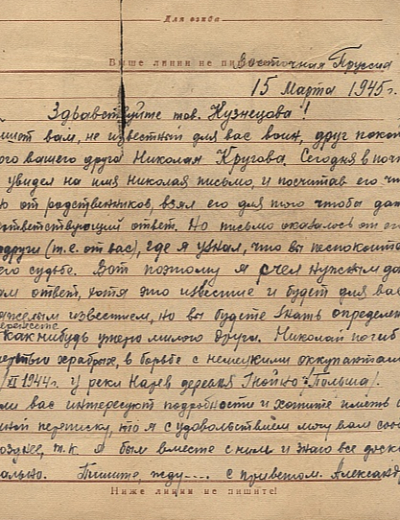 Для адреса
Выше линии не пишите
Восточная Пруссия
15 Марта 1945 г.
Здравствуйте тов. Кузнецова!
ишет вам, не известный для вас воин, друг покой
ого вашего друга Николая Кругова. Сегодня в почте
увидел на имя Николая письмо, и посчитав его что
от родственников, взял его для того чтобы дать
ответствующий ответ. Но письмо оказалось от его
подруги (т.е. от вас), где я узнал, что вы беспокоитесь
его судьбе. Вот поэтому я счел нужным дать
ам ответ, хотя это известие и будет для вас
яжелым известием, но вы будете знать определен
как нибудь утерю милого друга. Николай погиб
храбрых, в борьбе с немецкими оккупантами
1944 г. у реки Нарев деревня Гнойно /Польша/.
ли вас интересуют подробности и хотите иметь
ной переписку, то я с удовольствием могу вам сооб
позднее, т.к. я был вместе с ним и знаю все доско
нально. Пишите, жду.... с приветом. Александр
Ниже линии не пишите!